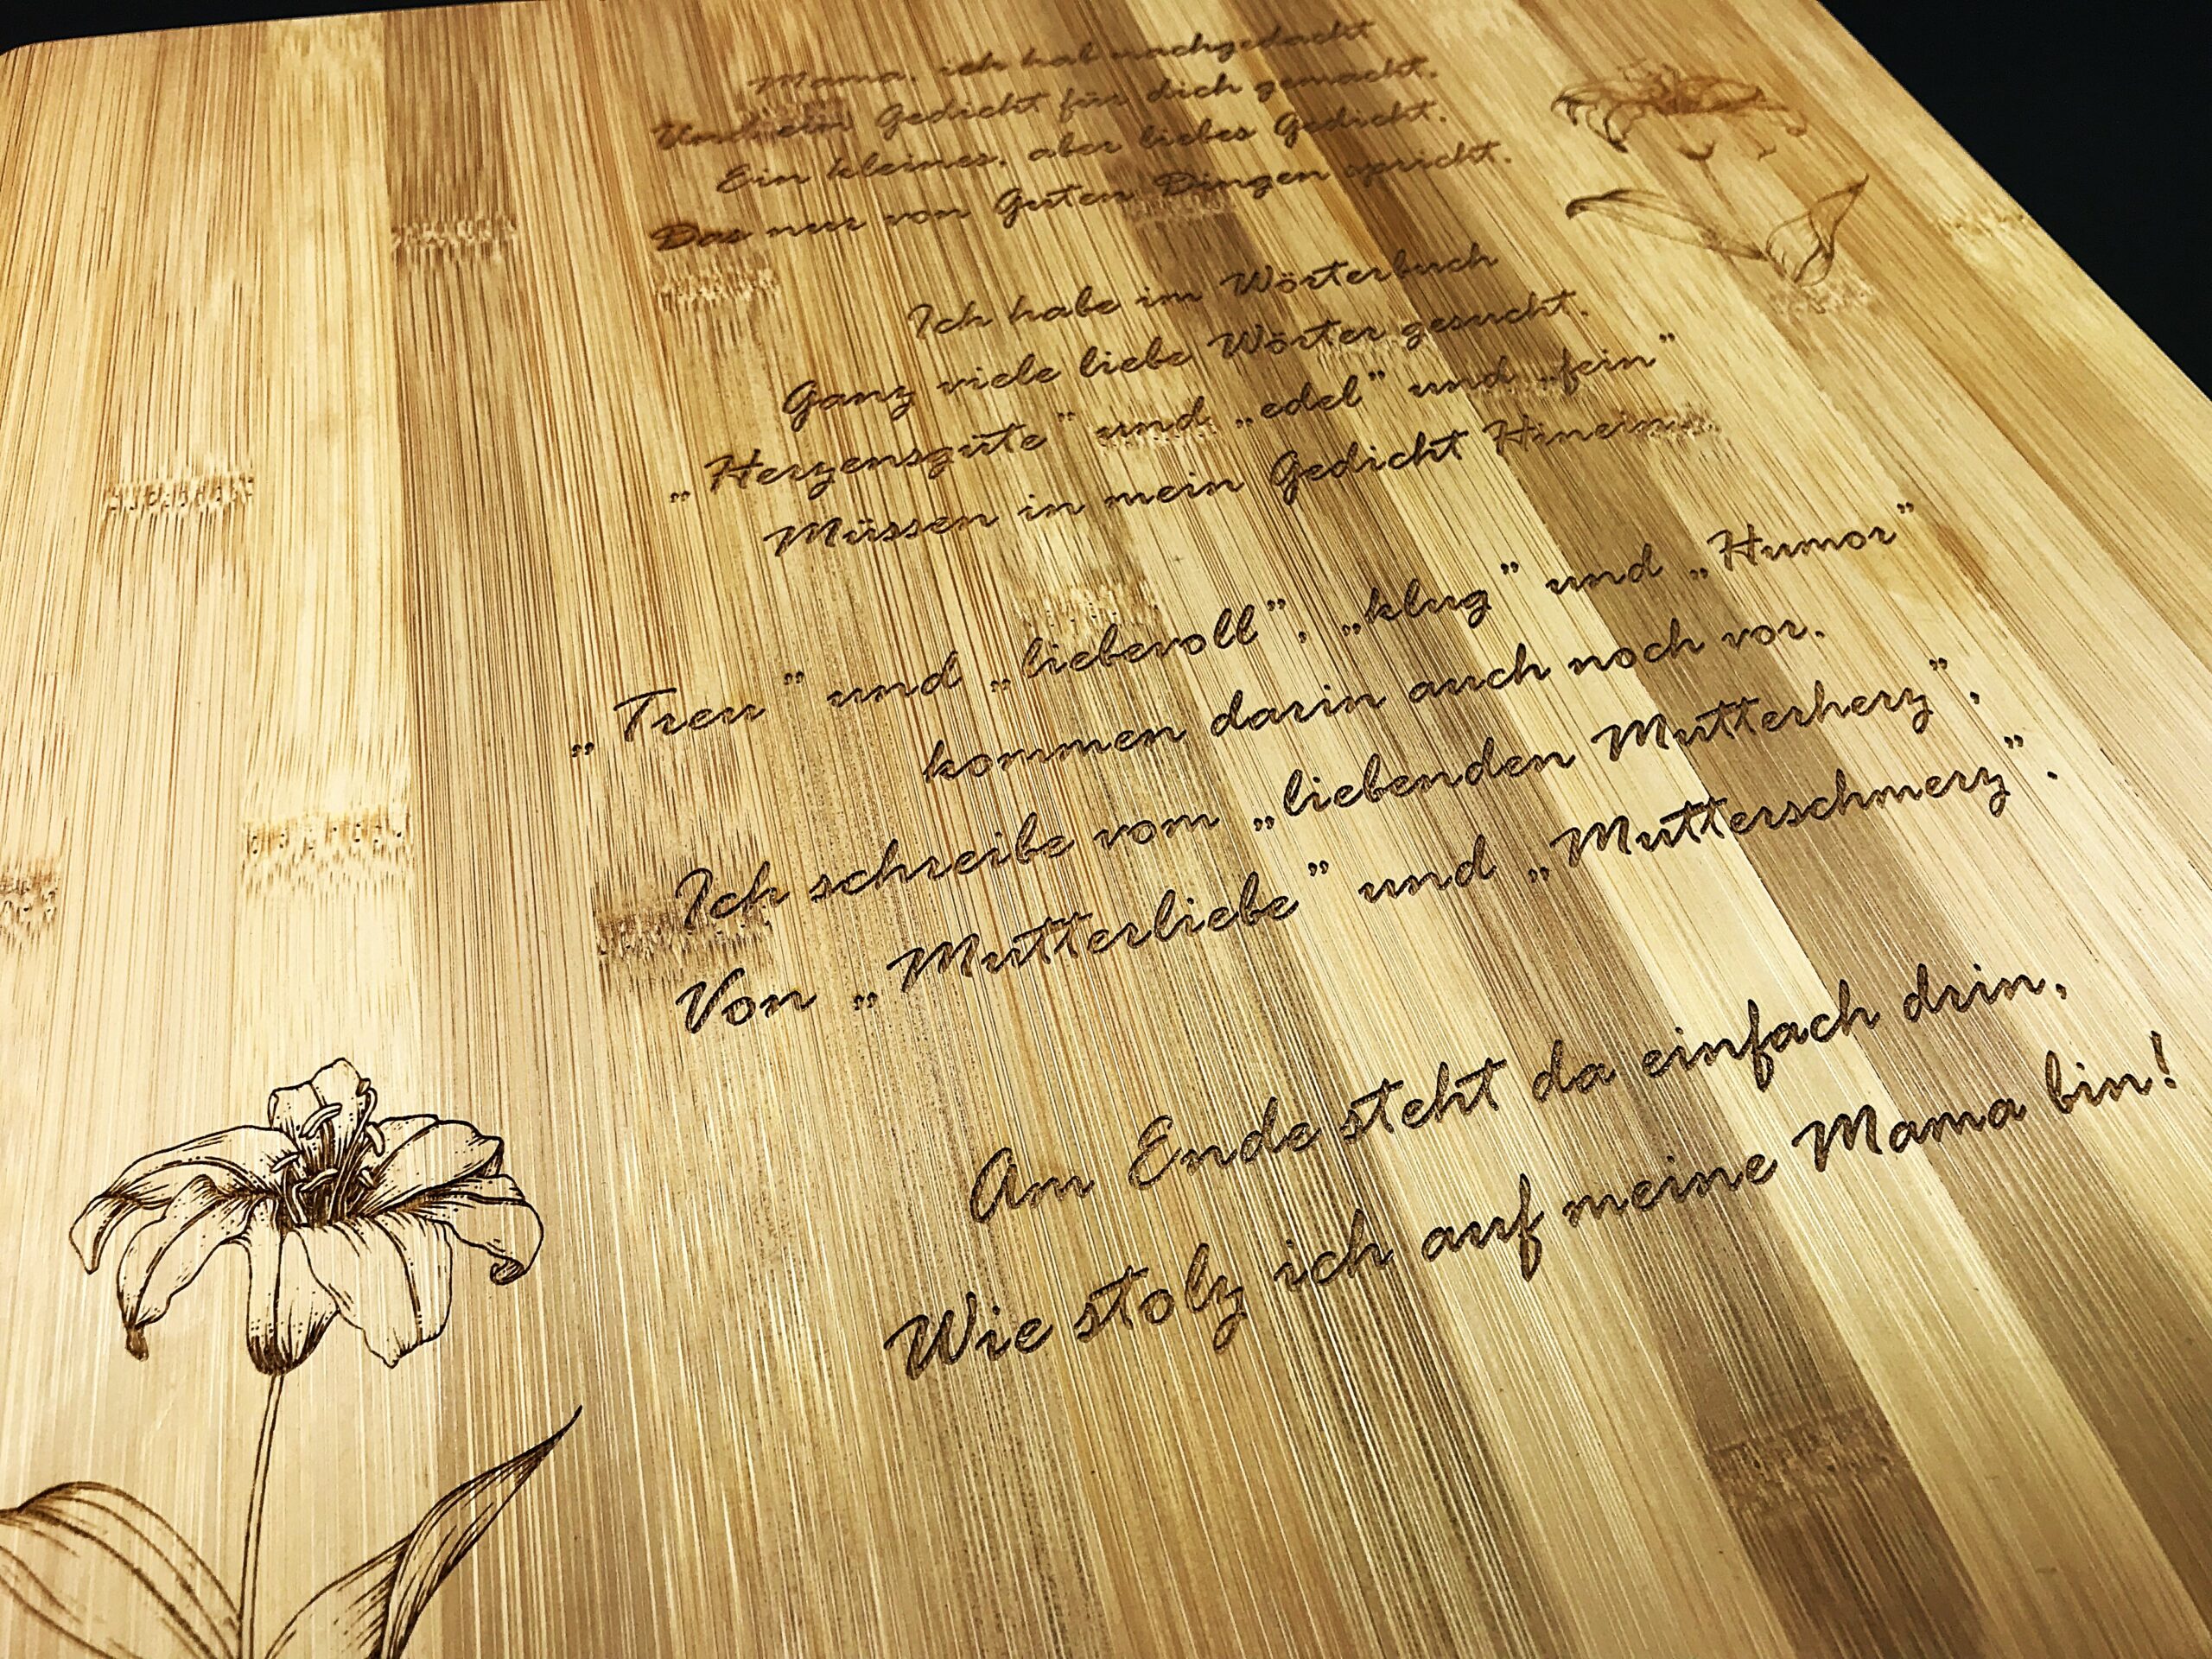 Mama, ich hab nachgedacht
Und ein Gedicht für dich gemacht.
Ein kleines, aber liebes Gedicht.
Das nur von Guten Dingen spricht.
Ich habe im Wörterbuch
Ganz viele liebe Wörter gesucht.
„Herzensgüte” und „edel” und „fein”
Müssen in mein Gedicht Hinein.
„Treu” und „liebevoll”, „klug” und „Humor”
kommen darin auch noch vor.
Ich schreibe vom „liebenden Mutterherz”,
Von „Mutterliebe” und „Mutterschmerz”.
Am Ende steht da einfach drin,
Wie stolz ich auf meine Mama bin!